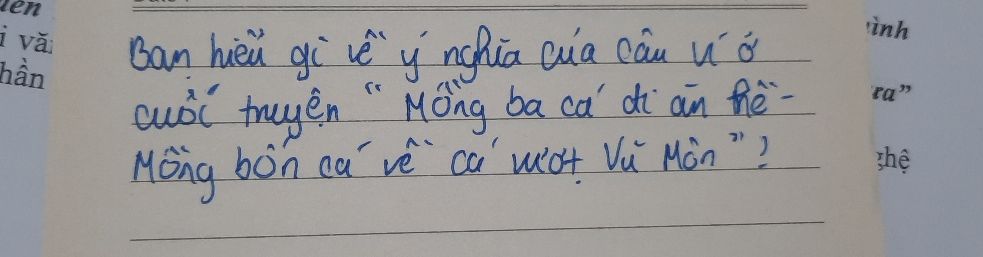 ı vă
hần
ình
ra”
ghệ
Bạn hiểu gì về ý nghĩa của câu ví ở
cuối truyện “Mồng ba cá đi ăn thề -
Mồng bốn cá về cá vượt Vũ Môn”?